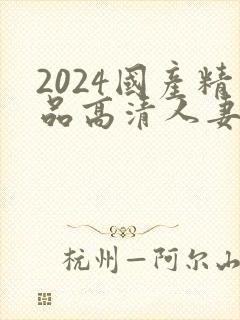 2024國產精
品高清人妻
杭州—阿尔山